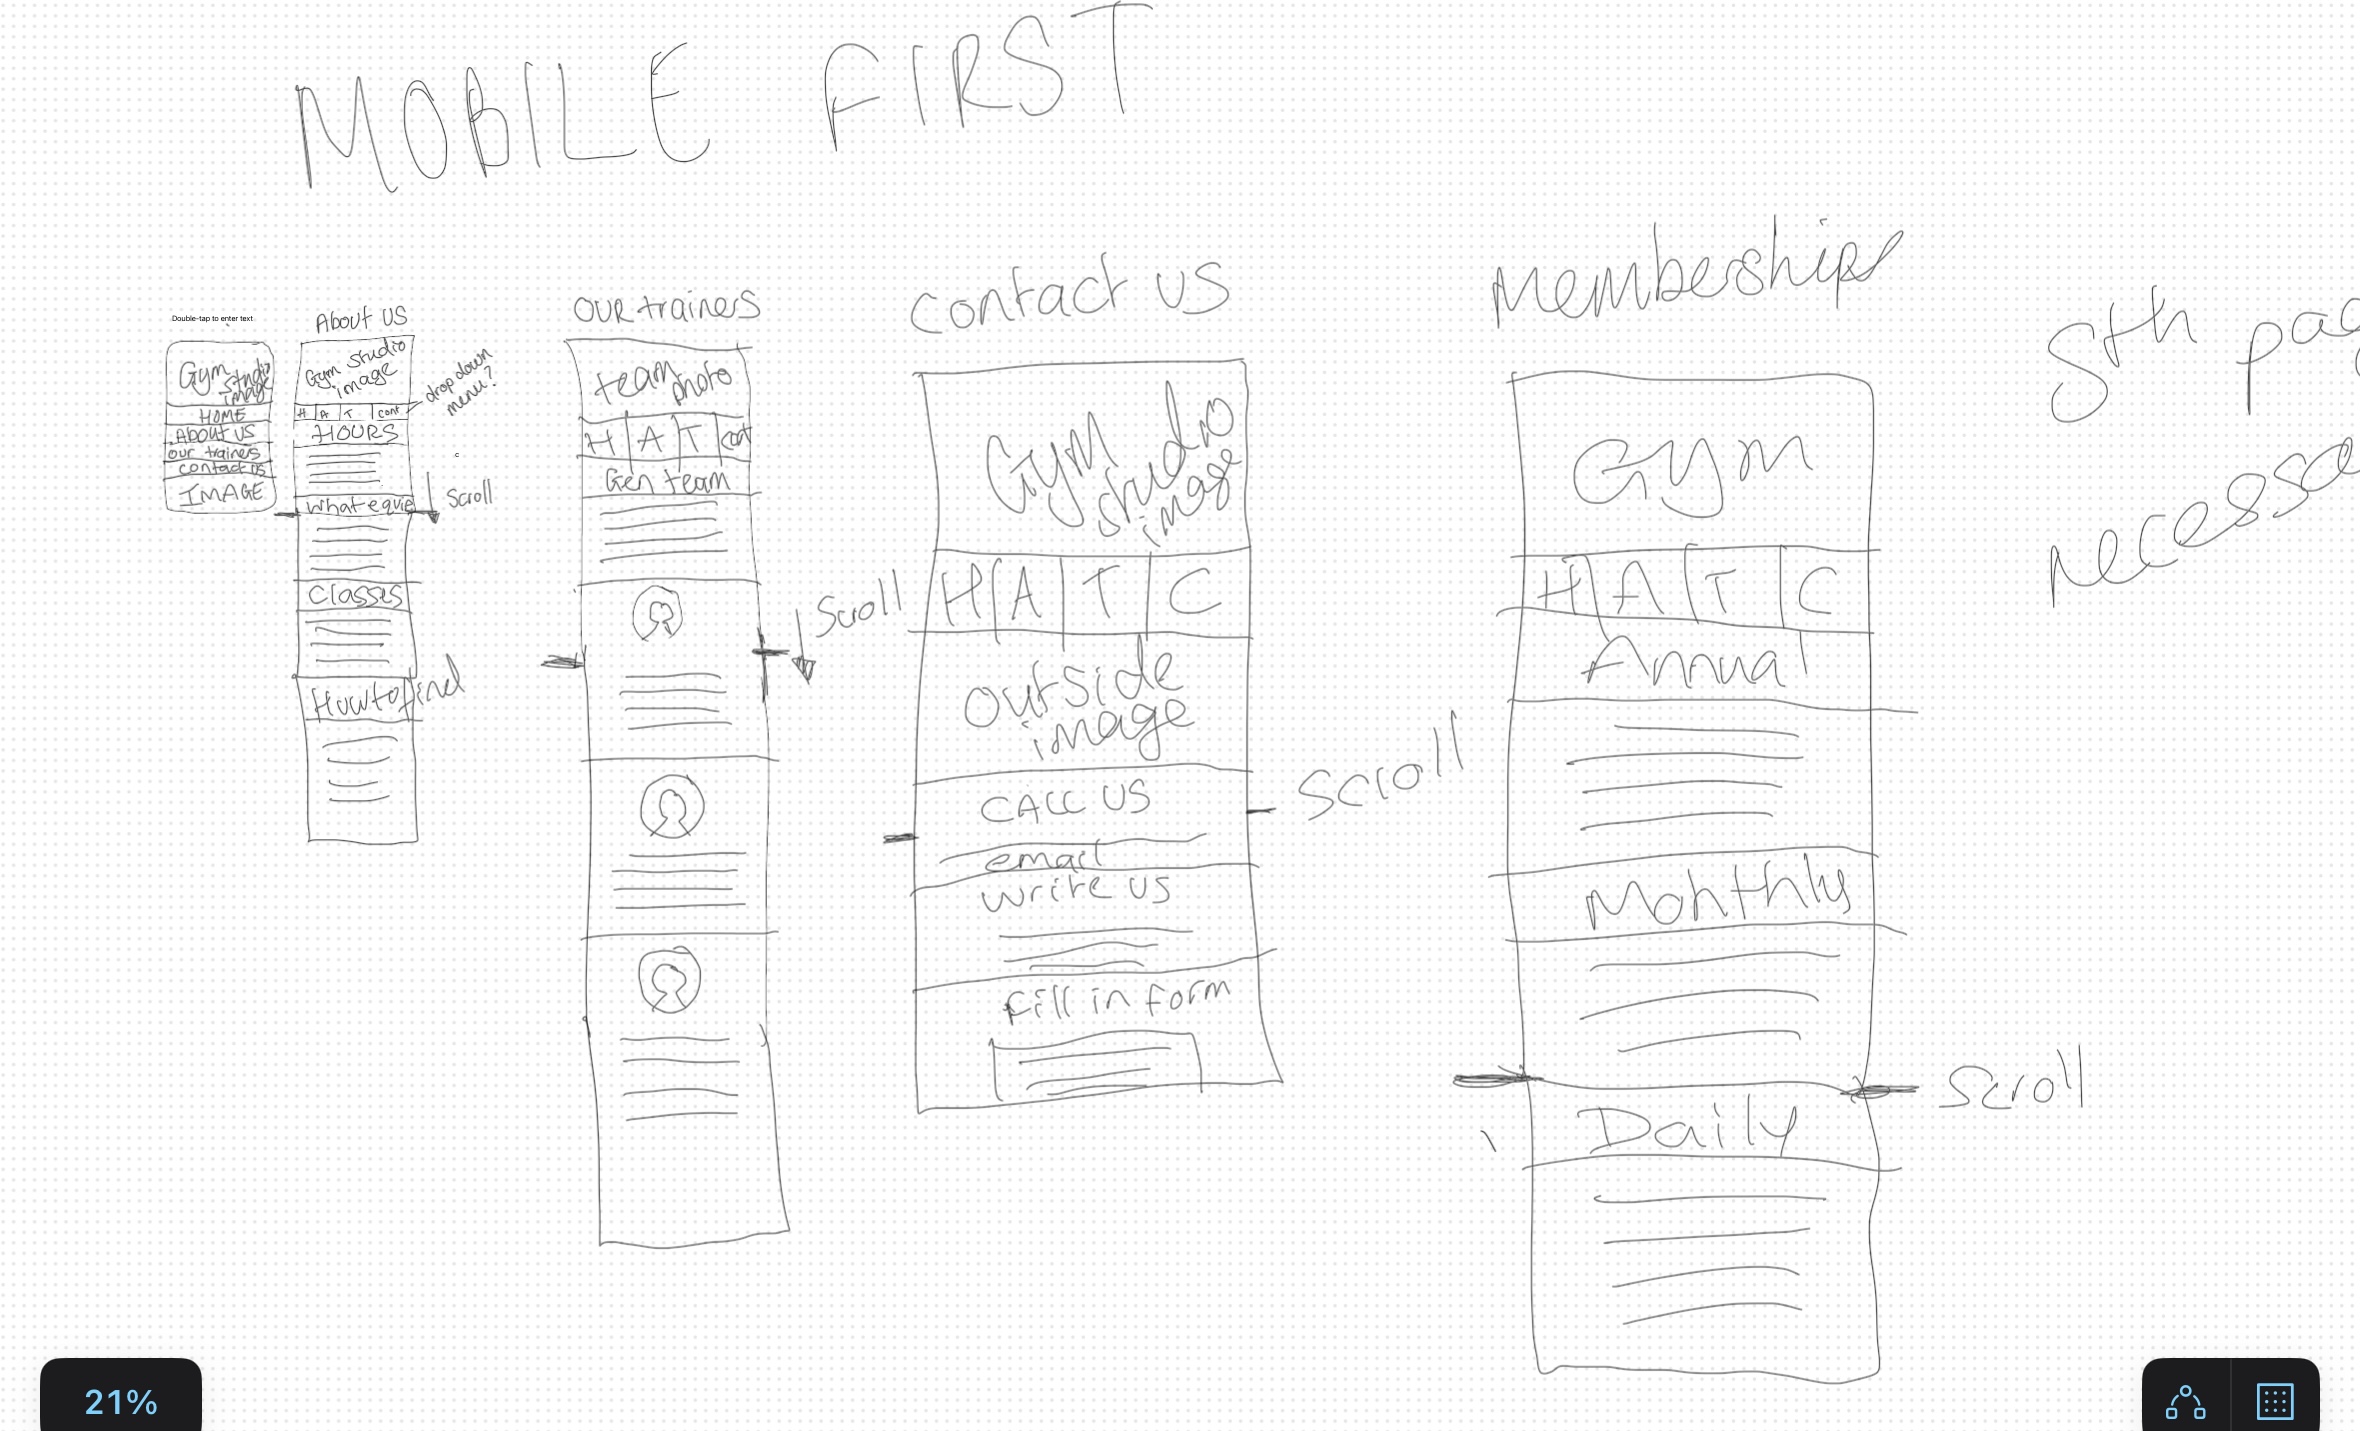 MOBILE FIRST
Double-tap to enter text
Gym
studio
image
HOME
About US
our trainers
contact us
IMAGE
About US
Gym studio
image
H A T cont
drop down
menu?
HOURS
what equie
Scroll
Classes
How to find
our trainers
team
photo
H A T cont
Gen team
Scroll
contact us
Gym
studio
image
H A T C
outside
image
CALL US
email
write us
fill in form
Scroll
Memberships
Gym
H A T C
Annual
Monthly
Daily
Scroll
5th pag
necessa
21%